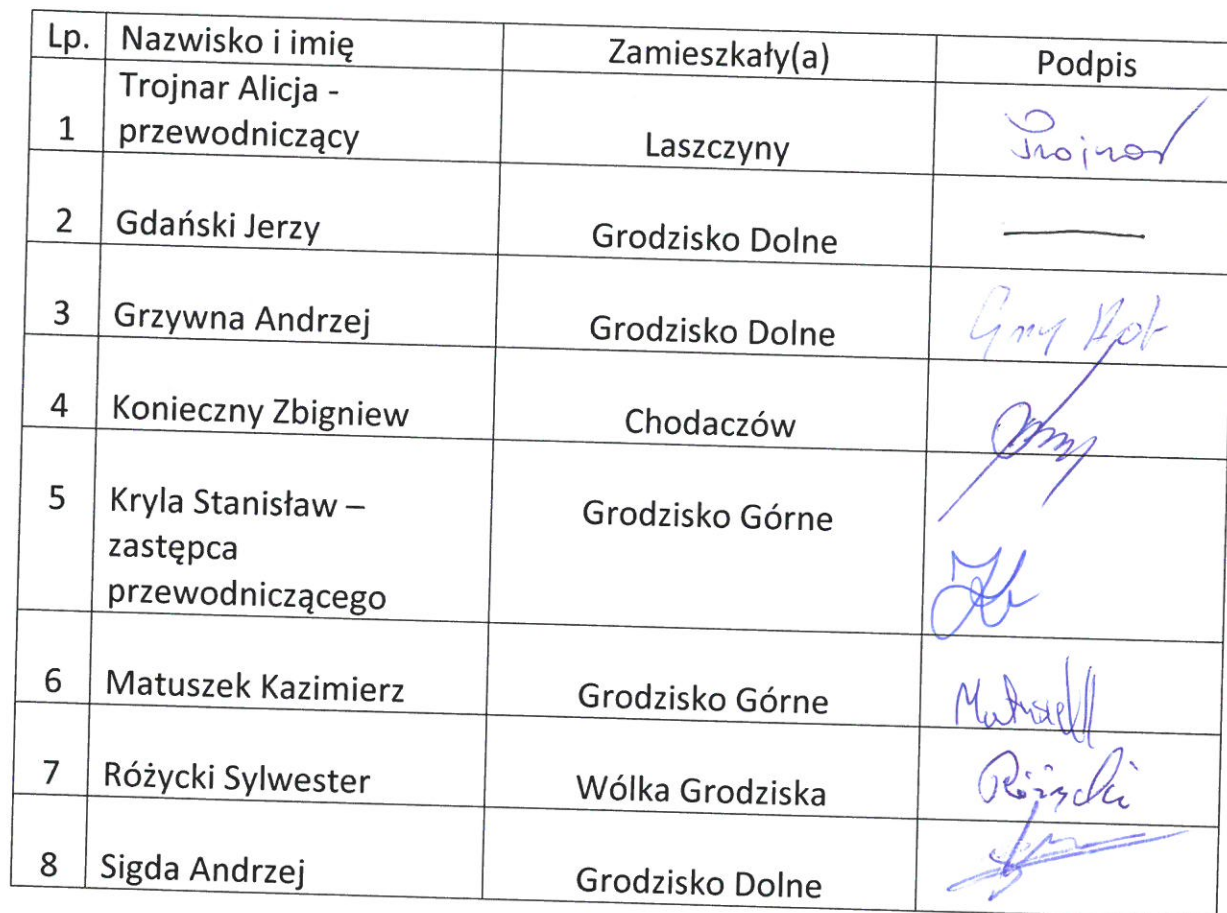 Lp. Nazwisko i imię Zamieszkały(a) Podpis
Trojnar Alicja -
1 przewodniczący Laszczyny Trojnar
2 Gdański Jerzy Grodzisko Dolne
3 Grzywna Andrzej Grodzisko Dolne
4 Konieczny Zbigniew Chodaczów
5 Kryla Stanisław – Grodzisko Górne
zastępca
przewodniczącego
6 Matuszek Kazimierz Grodzisko Górne Matuszek
7 Różycki Sylwester Wólka Grodziska Różycki
8 Sigda Andrzej Grodzisko Dolne